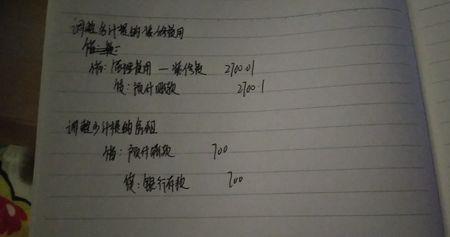 调整多计提的装修费用
借:管理费用—装修费 2700.01
贷:预付账款 2700.1
调整少计提的房租
借:预付账款 700
贷:银行存款 700